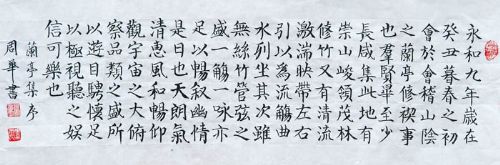 永和九年歲在
癸丑暮春之初
會於會稽山陰
之蘭亭修禊事
也羣賢畢至少
長咸集此地有
崇山峻領茂林
修竹又有清流
激湍映帶左右
引以為流觴曲
水列坐其次雖
無絲竹管弦之
盛一觴一詠亦
足以暢叙幽情
是日也天朗氣
清惠風和暢仰
觀宇宙之大俯
察品類之盛所
以遊目騁懷足
以極視聽之娛
信可樂也
蘭亭集序
周華書